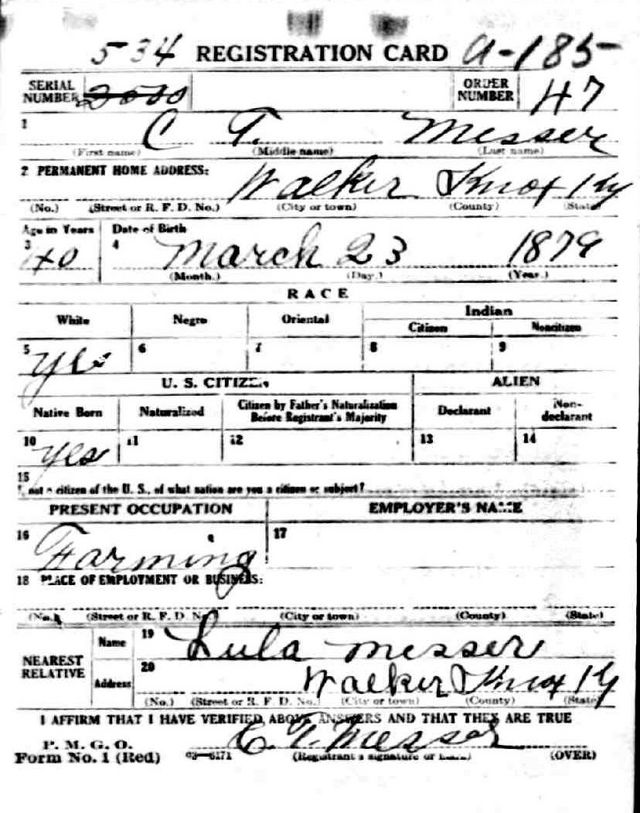 534 REGISTRATION CARD A-185
SERIAL NUMBER ORDER NUMBER 47
1 C T. Messer
(First name) (Middle name) (Last name)
2 PERMANENT HOME ADDRESS:
Walker Knox Ky
(No.) (Street or R. F. D. No.) (City or town) (County) (State)
Age in Years Date of Birth
3 40 4 March 23 1879
(Month.) (Day.) (Year.)
RACE
White Negro Oriental Indian
Citizen Noncitizen
5 yes 6 7 8 9
U. S. CITIZEN ALIEN
Native Born Naturalized Citizen by Father's Naturalization Before Registrant's Majority Declarant Non-declarant
10 yes 11 12 13 14
15
not a citizen of the U. S., of what nation are you a citizen or subject?
PRESENT OCCUPATION EMPLOYER'S NAME
16 Farming 17
18 PLACE OF EMPLOYMENT OR BUSINESS:
(No.) (Street or R. F. D. No.) (City or town) (County) (State)
NEAREST RELATIVE Name 19 Lula Messer
Address 20 Walker Knox Ky
(No.) (Street or R. F. D. No.) (City or town) (County) (State)
I AFFIRM THAT I HAVE VERIFIED ABOVE ANSWERS AND THAT THEY ARE TRUE
P. M. G. O.
Form No. 1 (Red) 03—6171 C. T. Messer
(Registrant's signature or mark) (OVER)